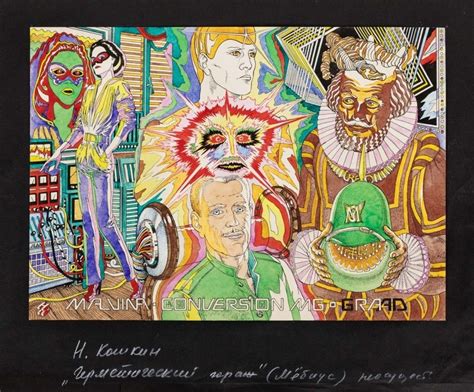 M
MALVINA · CONVERSION MG · GRAAD
Н. Кошкин
„Герметический гараж" (Мёбиус)